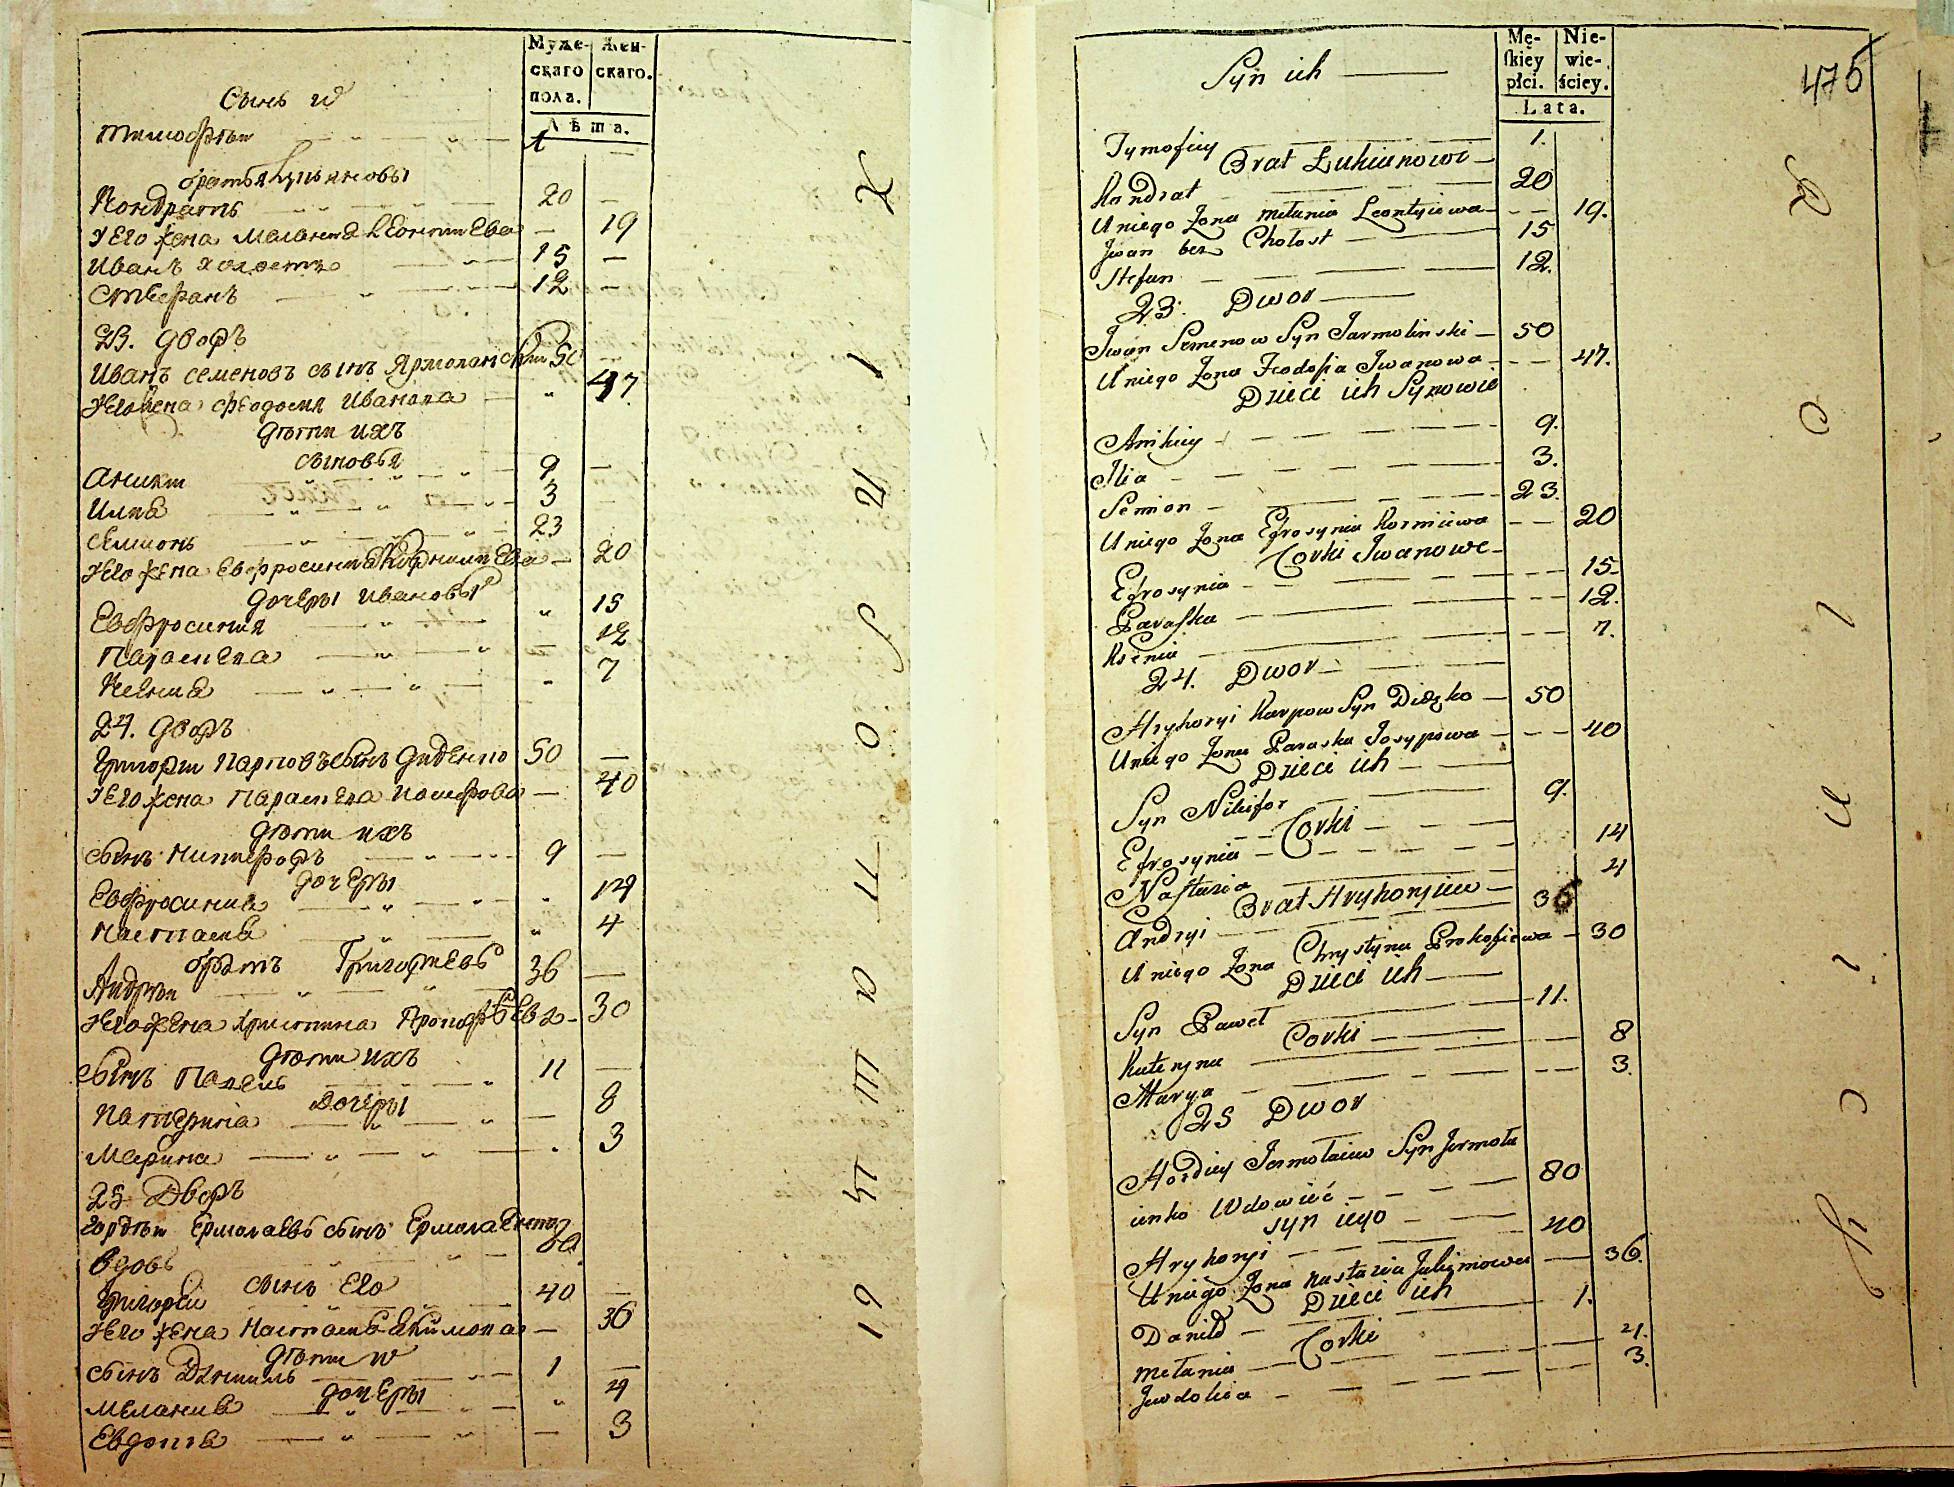 Муже-
скаго
пола.
Жен-
скаго.
Лѣта.
Сынъ и
Тимофѣи 1
братья Лукьяновы
Кондратъ 20
У него жена Мелания Леонтиева 19
Иванъ холостъ 15
Стефанъ 12
23. дворъ
Иванъ Семеновъ сынъ Ярмолинскии 50
У него жена Феодосия Иванова 47
дѣти ихъ
сыновья
Аникии 9
Илиа 3
Семионъ 23
У него жена Евфросиния Корниииева 20
дочери Ивановы
Евфросиния 15
Параскева 12
Ксения 7
24. дворъ
Григории Карповъ сынъ Диденко 50
У него жена Параскева Иосифова 40
дѣти ихъ
сынъ Никифоръ 9
дочери
Евфросиниа 14
Настасиа 4
братъ Григориевъ
Андрѣи 36
У него жена Христина Прокофьева 30
дѣти ихъ
сынъ Павелъ 11
дочери
Катерина 8
Марина 3
25 Дворъ
Гордѣи Ермолаевъ сынъ Ермолаенко 80
вдовъ
сынъ Его
Григорей 40
У него жена Настасья Акимова 36
дѣти и
сынъ Даниилъ 1
дочери
Мелания 4
Евдокиа 3
Mę-
skiey
płci.
Nie-
wie-
ściey.
Lata.
475
Syn ich
Tymofiey 1.
Brat Łukianowi
Kondrat 20
U niego Żona Mełania Leontyiewa 19.
Jwan bez Chołost 15
Stefan 12.
23. Dwor
Jwan Semenow Syn Jarmolinski 50
U niego Żona Feodosia Jwanowa 47.
Dzieci ich Synowie
Anikiy 9.
Ilia 3.
Semion 23.
U niego Żona Efrosynia Korniiewa 20
Corki Jwanowe
Efrosynia 15
Paraska 12.
Ksenia 7.
24. Dwor
Hryhoryi Karpow Syn Didęko 50
U niego Żona Paraska Josypowa 40
Dzieci ich
Syn Nikifor 9.
Corki
Efrosynia 14
Nastazia 4
Brat Hryhoryiew
Andryi 36
U niego Żona Chrystyna Prokofiewa 30
Dzieci ich
Syn Paweł 11.
Corki
Kateryna 8
Maryа 3.
25 Dwor
Hordiey Jermołaiew Syn Jermoła
ienko Wdowieć 80
syn iego
Hryhoryi 40
U niego Żona Nastazia Jakimowa 36.
Dzieci ich
Daniło 1.
Corki
Mełania 4.
Jewdokia 3.